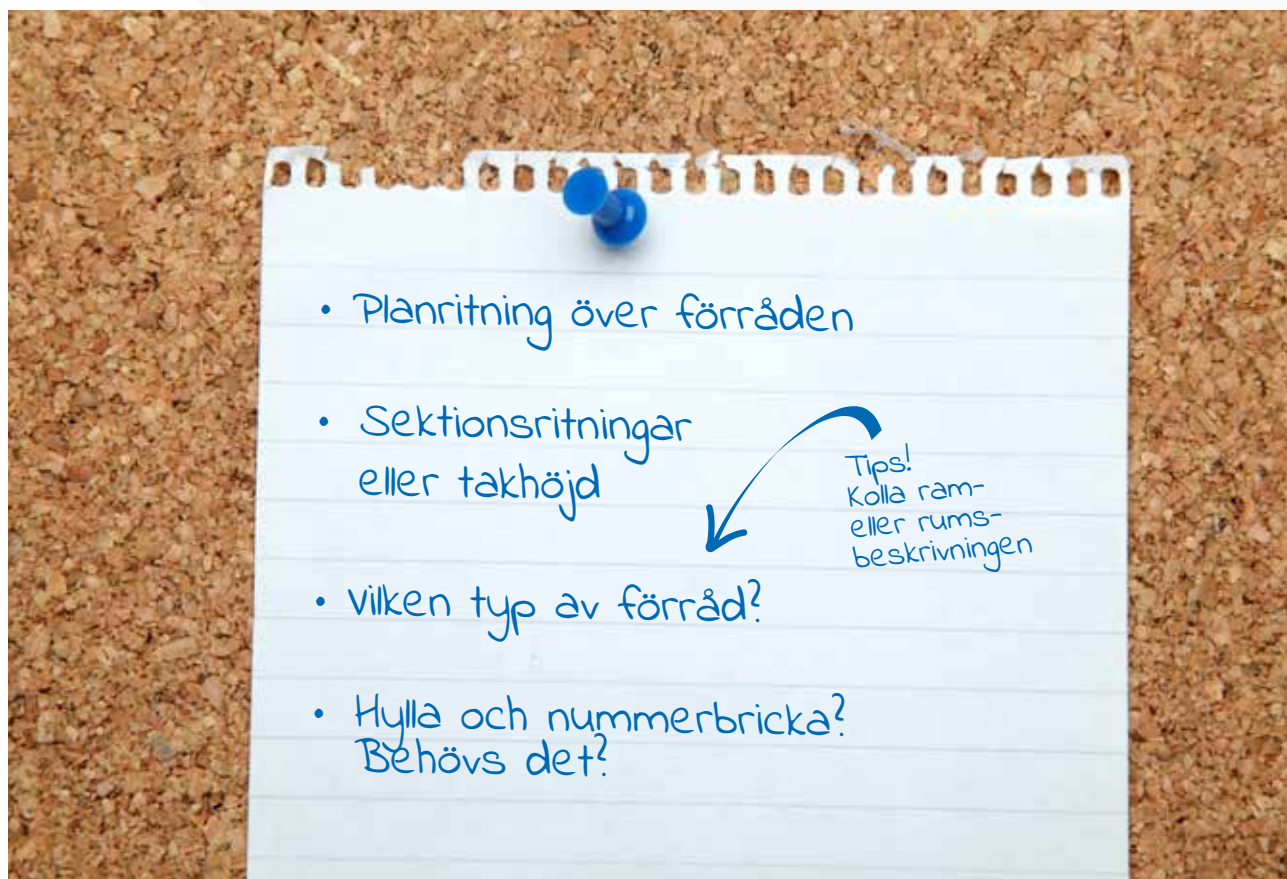 • Planritning över förråden
• Sektionsritningar
eller takhöjd
Tips!
Kolla ram-
eller rums-
beskrivningen
• vilken typ av förråd?
• Hylla och nummerbricka?
Behövs det?